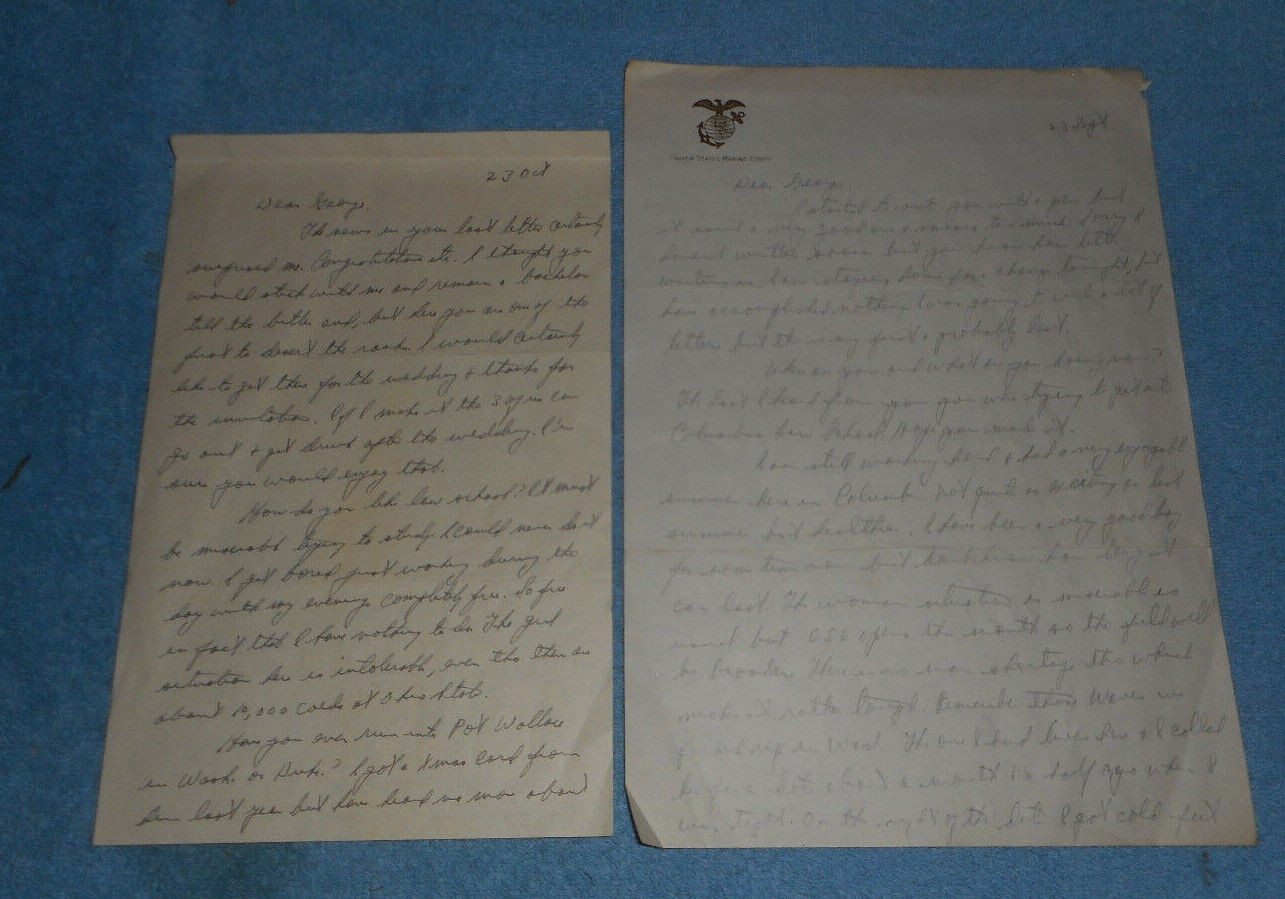 23 Oct
Dear George,
The news in your last letter certainly
surprised me. Congratulations etc. I thought you
would stick with me and remain a bachelor
till the bitter end, but here you are one of the
first to desert the ranks. I would certainly
like to get there for the wedding & thanks for
the invitation. If I make it the 3 of us can
go out & get drunk after the wedding. I'm
sure you would enjoy that.
How do you like law school? It must
be miserable trying to study. I could never do it
now. I get bored just working during the
day with my evenings completely free. So free
in fact that I have nothing to do. The girl
situation here is intolerable, even tho there are
about 10,000 coeds at Ohio State.
Have you ever run into Pat Wallace
in Wash. or ? I got a Xmas card from
him last year but have heard no more about
UNITED STATES MARINE CORPS
23 Sept
Dear George,
I started to write you with a pen but
it wasn't a very good one & so to a mind. Sorry I
haven't written sooner, but you know how
writing is. I am staying home for a change tonight, but
have accomplished nothing. I was going to write a lot of
letters but this is my first & probably last.
Where are you and what are you doing now?
The last I heard from you you were trying to get into
Columbia Law School. Hope you made it.
I am still working hard & had a very enjoyable
summer here in Columbus not quite as exciting as last
summer but healthier. I have been a very good boy
for some time now but don't know how long it
can last. The woman situation is miserable as
usual but OSU opens this month so the field will
be broader. There is a man shortage tho which
makes it rather tough. Remember those Waves we
picked up in Wash. The one I had lives here & I called
her for a date about a month & a half ago when I
was tight. On the night of the date I got cold feet